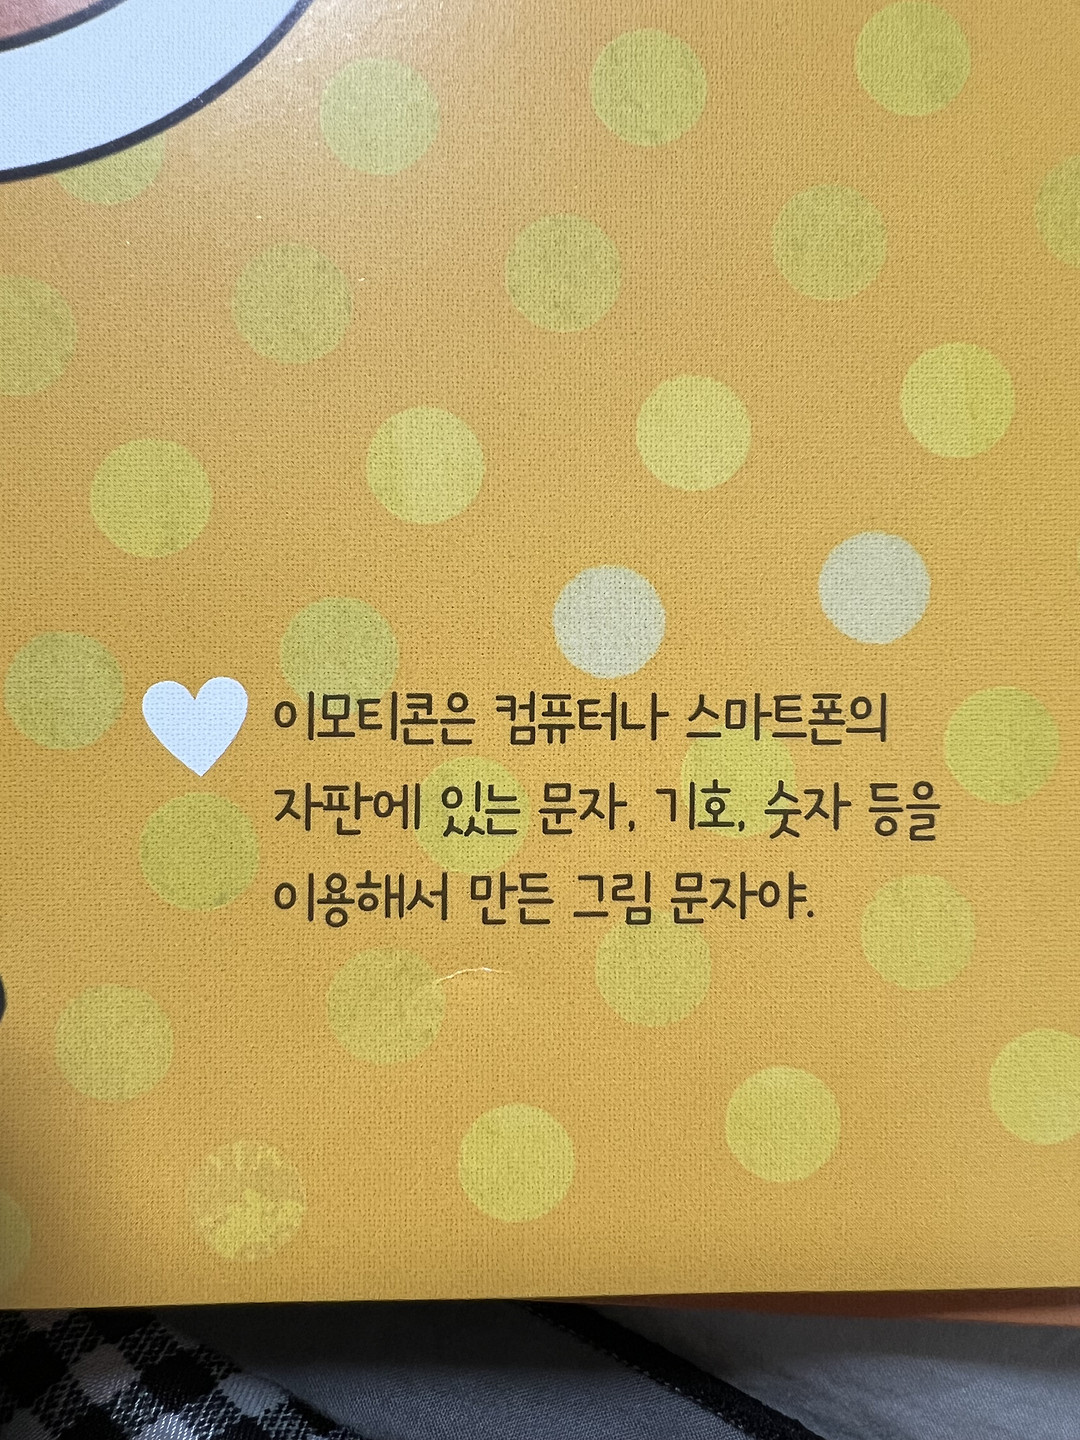 이모티콘은 컴퓨터나 스마트폰의
자판에 있는 문자, 기호, 숫자 등을
이용해서 만든 그림 문자야.